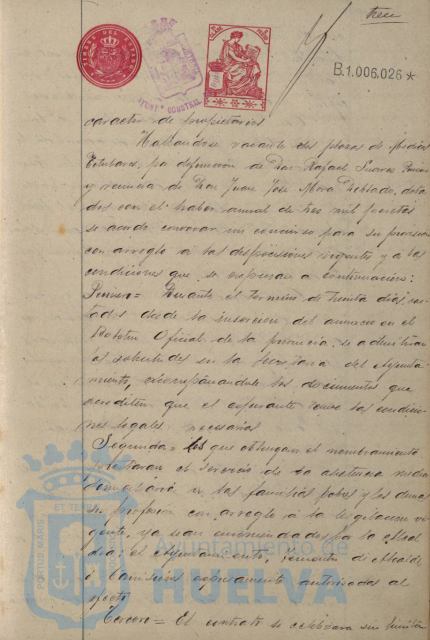 trece
B.1.006.026 *
TIMBRE DEL ESTADO
AYUNTº CONSTNAL
caracter de propietarios
Hallándose vacante dos plazas de Médicos
Titulares, por defunción de Don Rafael Suarez
y renuncia de Don Juan José Mora, dota
das con el haber anual de tres mil pesetas
se acordó convocar un concurso para su provision
con arreglo á las disposiciones vigentes y a las
condiciones que se expresan a continuación:
Primera = Durante el termino de treinta dias, con
tados desde la insercion del anuncio en el
Boletin Oficial de la provincia, se admitirán
solicitudes en la Secretaria del Ayunta
miento, acompañandole los documentos que
acrediten que el aspirante reune las condicio
nes legales necesarias
Segunda = Los que obtengan el nombramiento
prestarán el servicio de la asistencia médica
domiciliaria á las familias pobres y los demas
de su profesion con arreglo á la legislacion vi
gente, ya sean encomendados por la Alcal
dia, el Ayuntamiento, Tenientes de Alcalde
ó Comisiones autorizadas al
efecto
Tercera = El contrato se celebrará sin
Ayuntamiento de
HUELVA
PORTUS MARIS ET TERRE